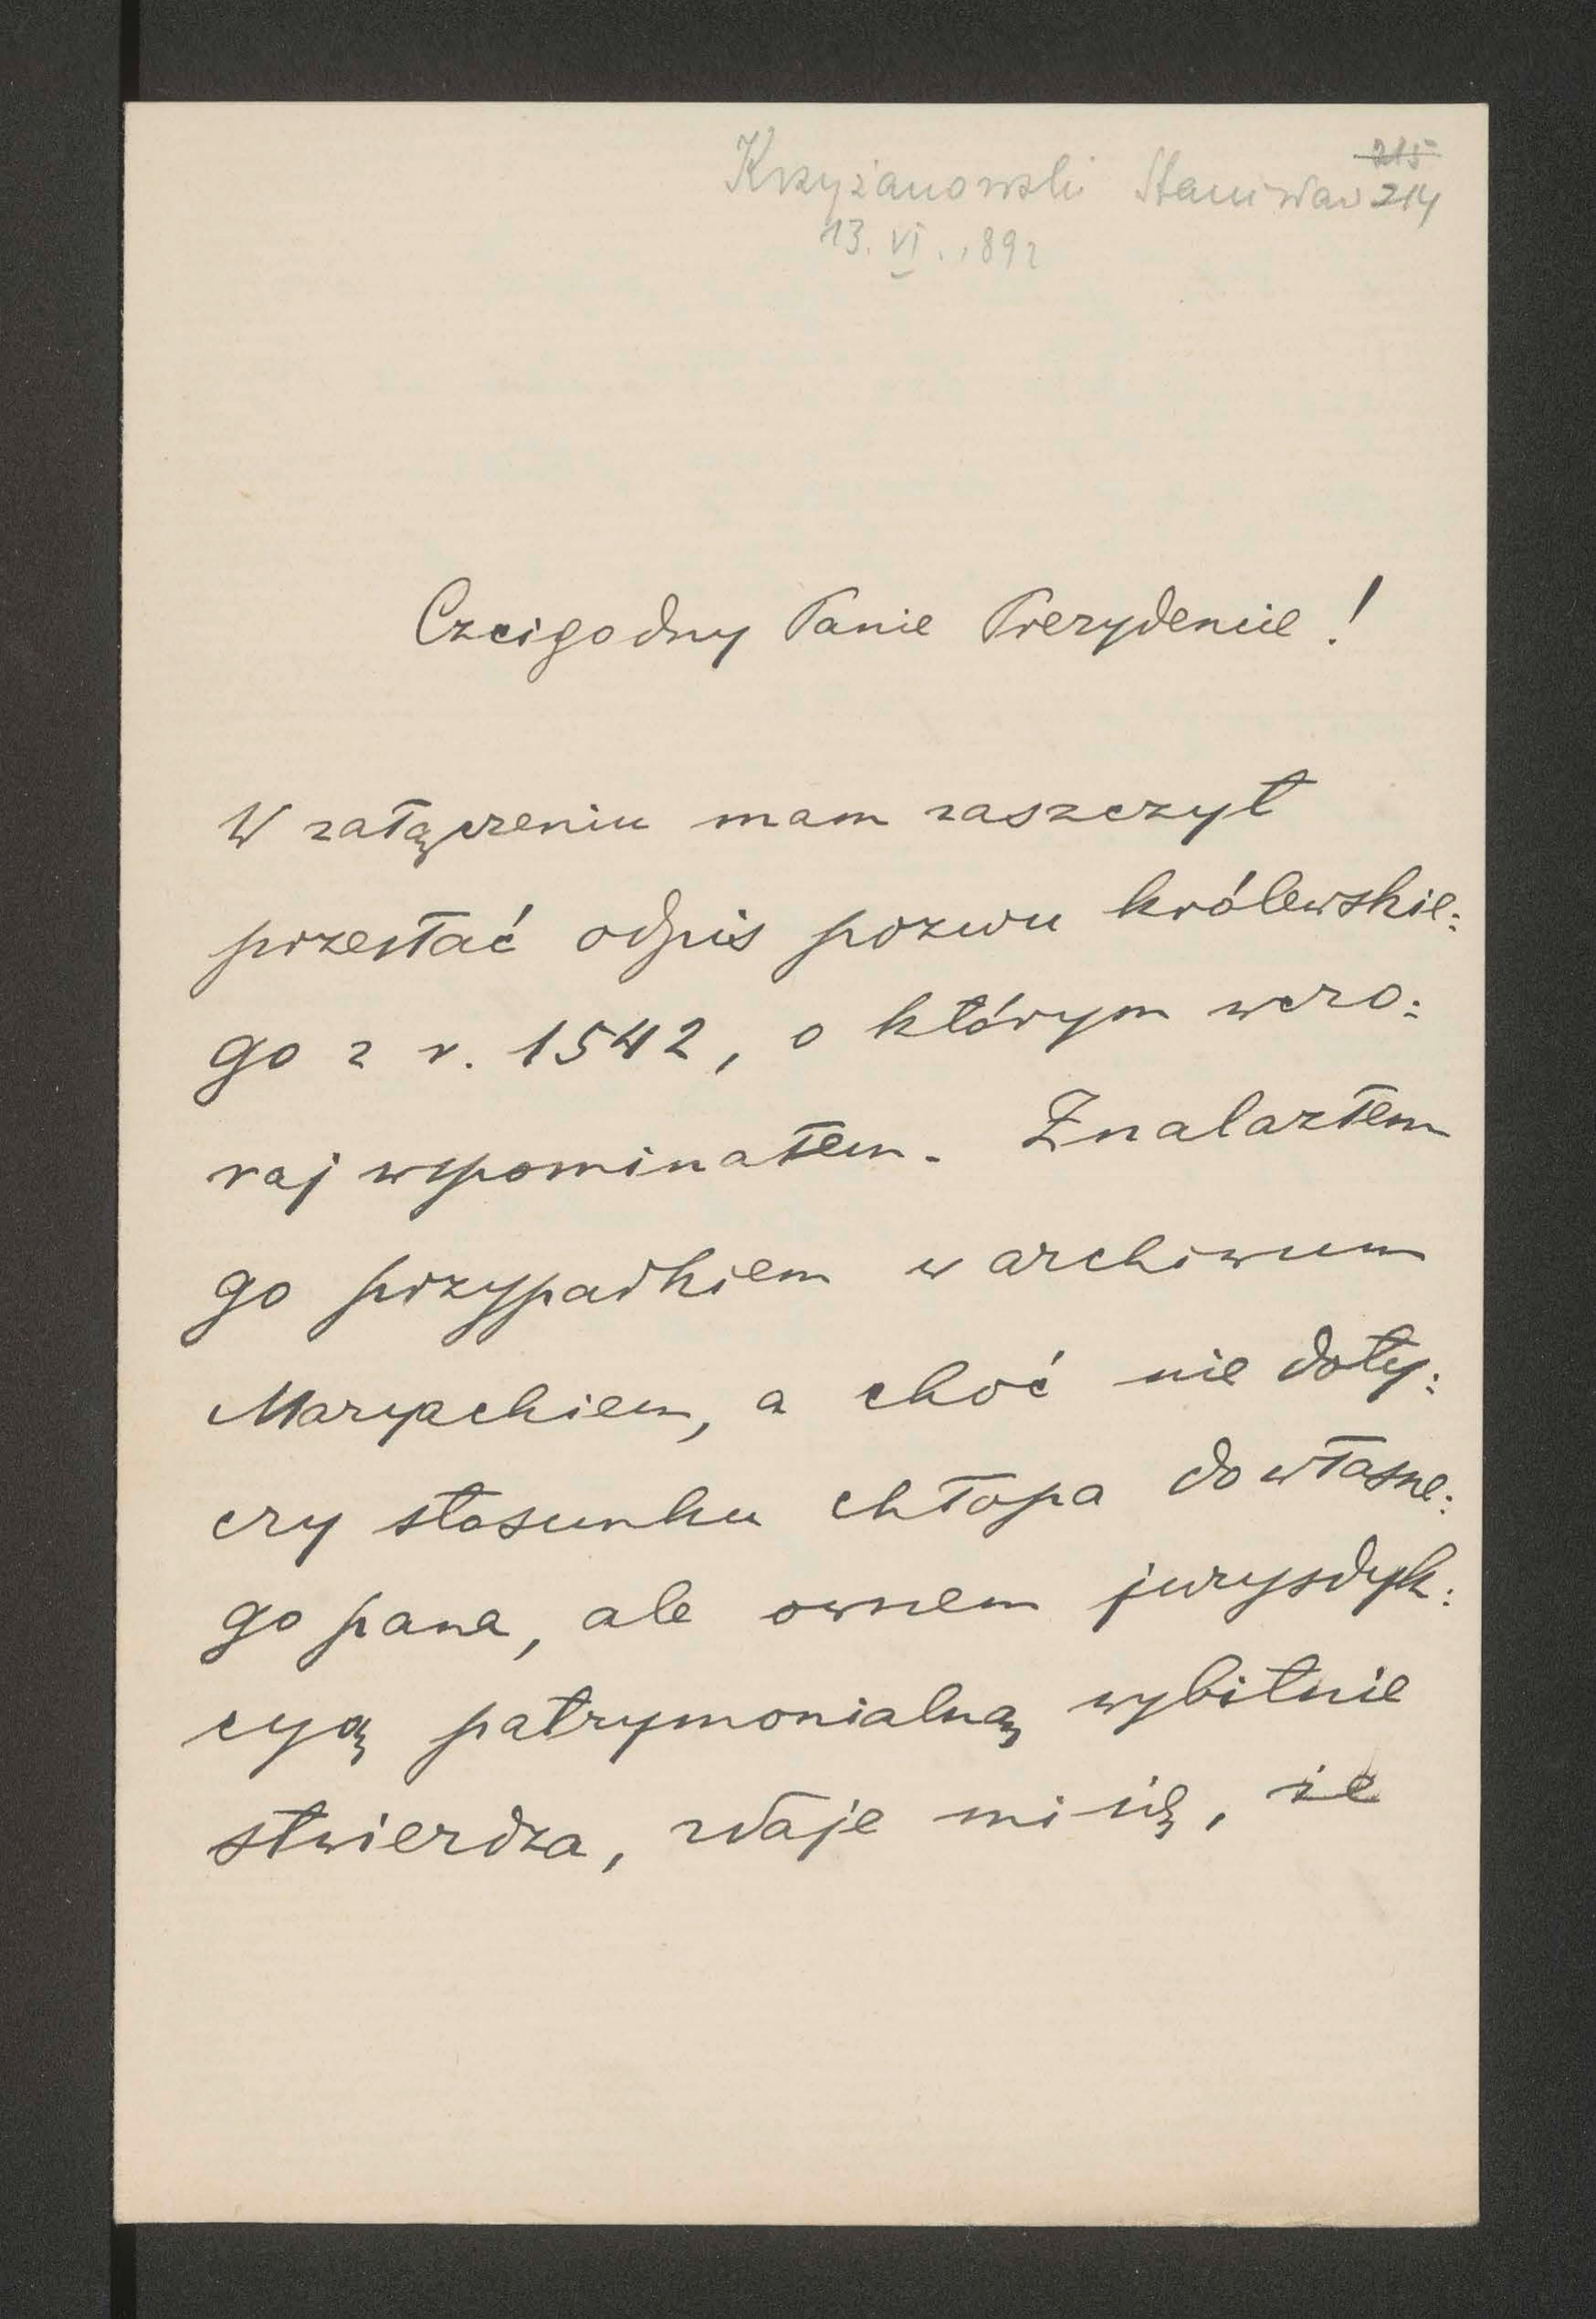 215
Krzyżanowski Stanisław 214
13. VI. 1892
Czcigodny Panie Prezydencie!
W załączeniu mam zaszczyt
przesłać odpis pozwu królewskie:
go z r. 1542, o którym wczo:
raj wspominałem. Znalazłem
go przypadkiem w archiwum
Maryackiem, a choć nie doty:
czy stosunku chłopa do własne:
go pana, ale ownem jurysdyk:
cyą patrymonialną wybitnie
stwierdza, zdaje mi się, że